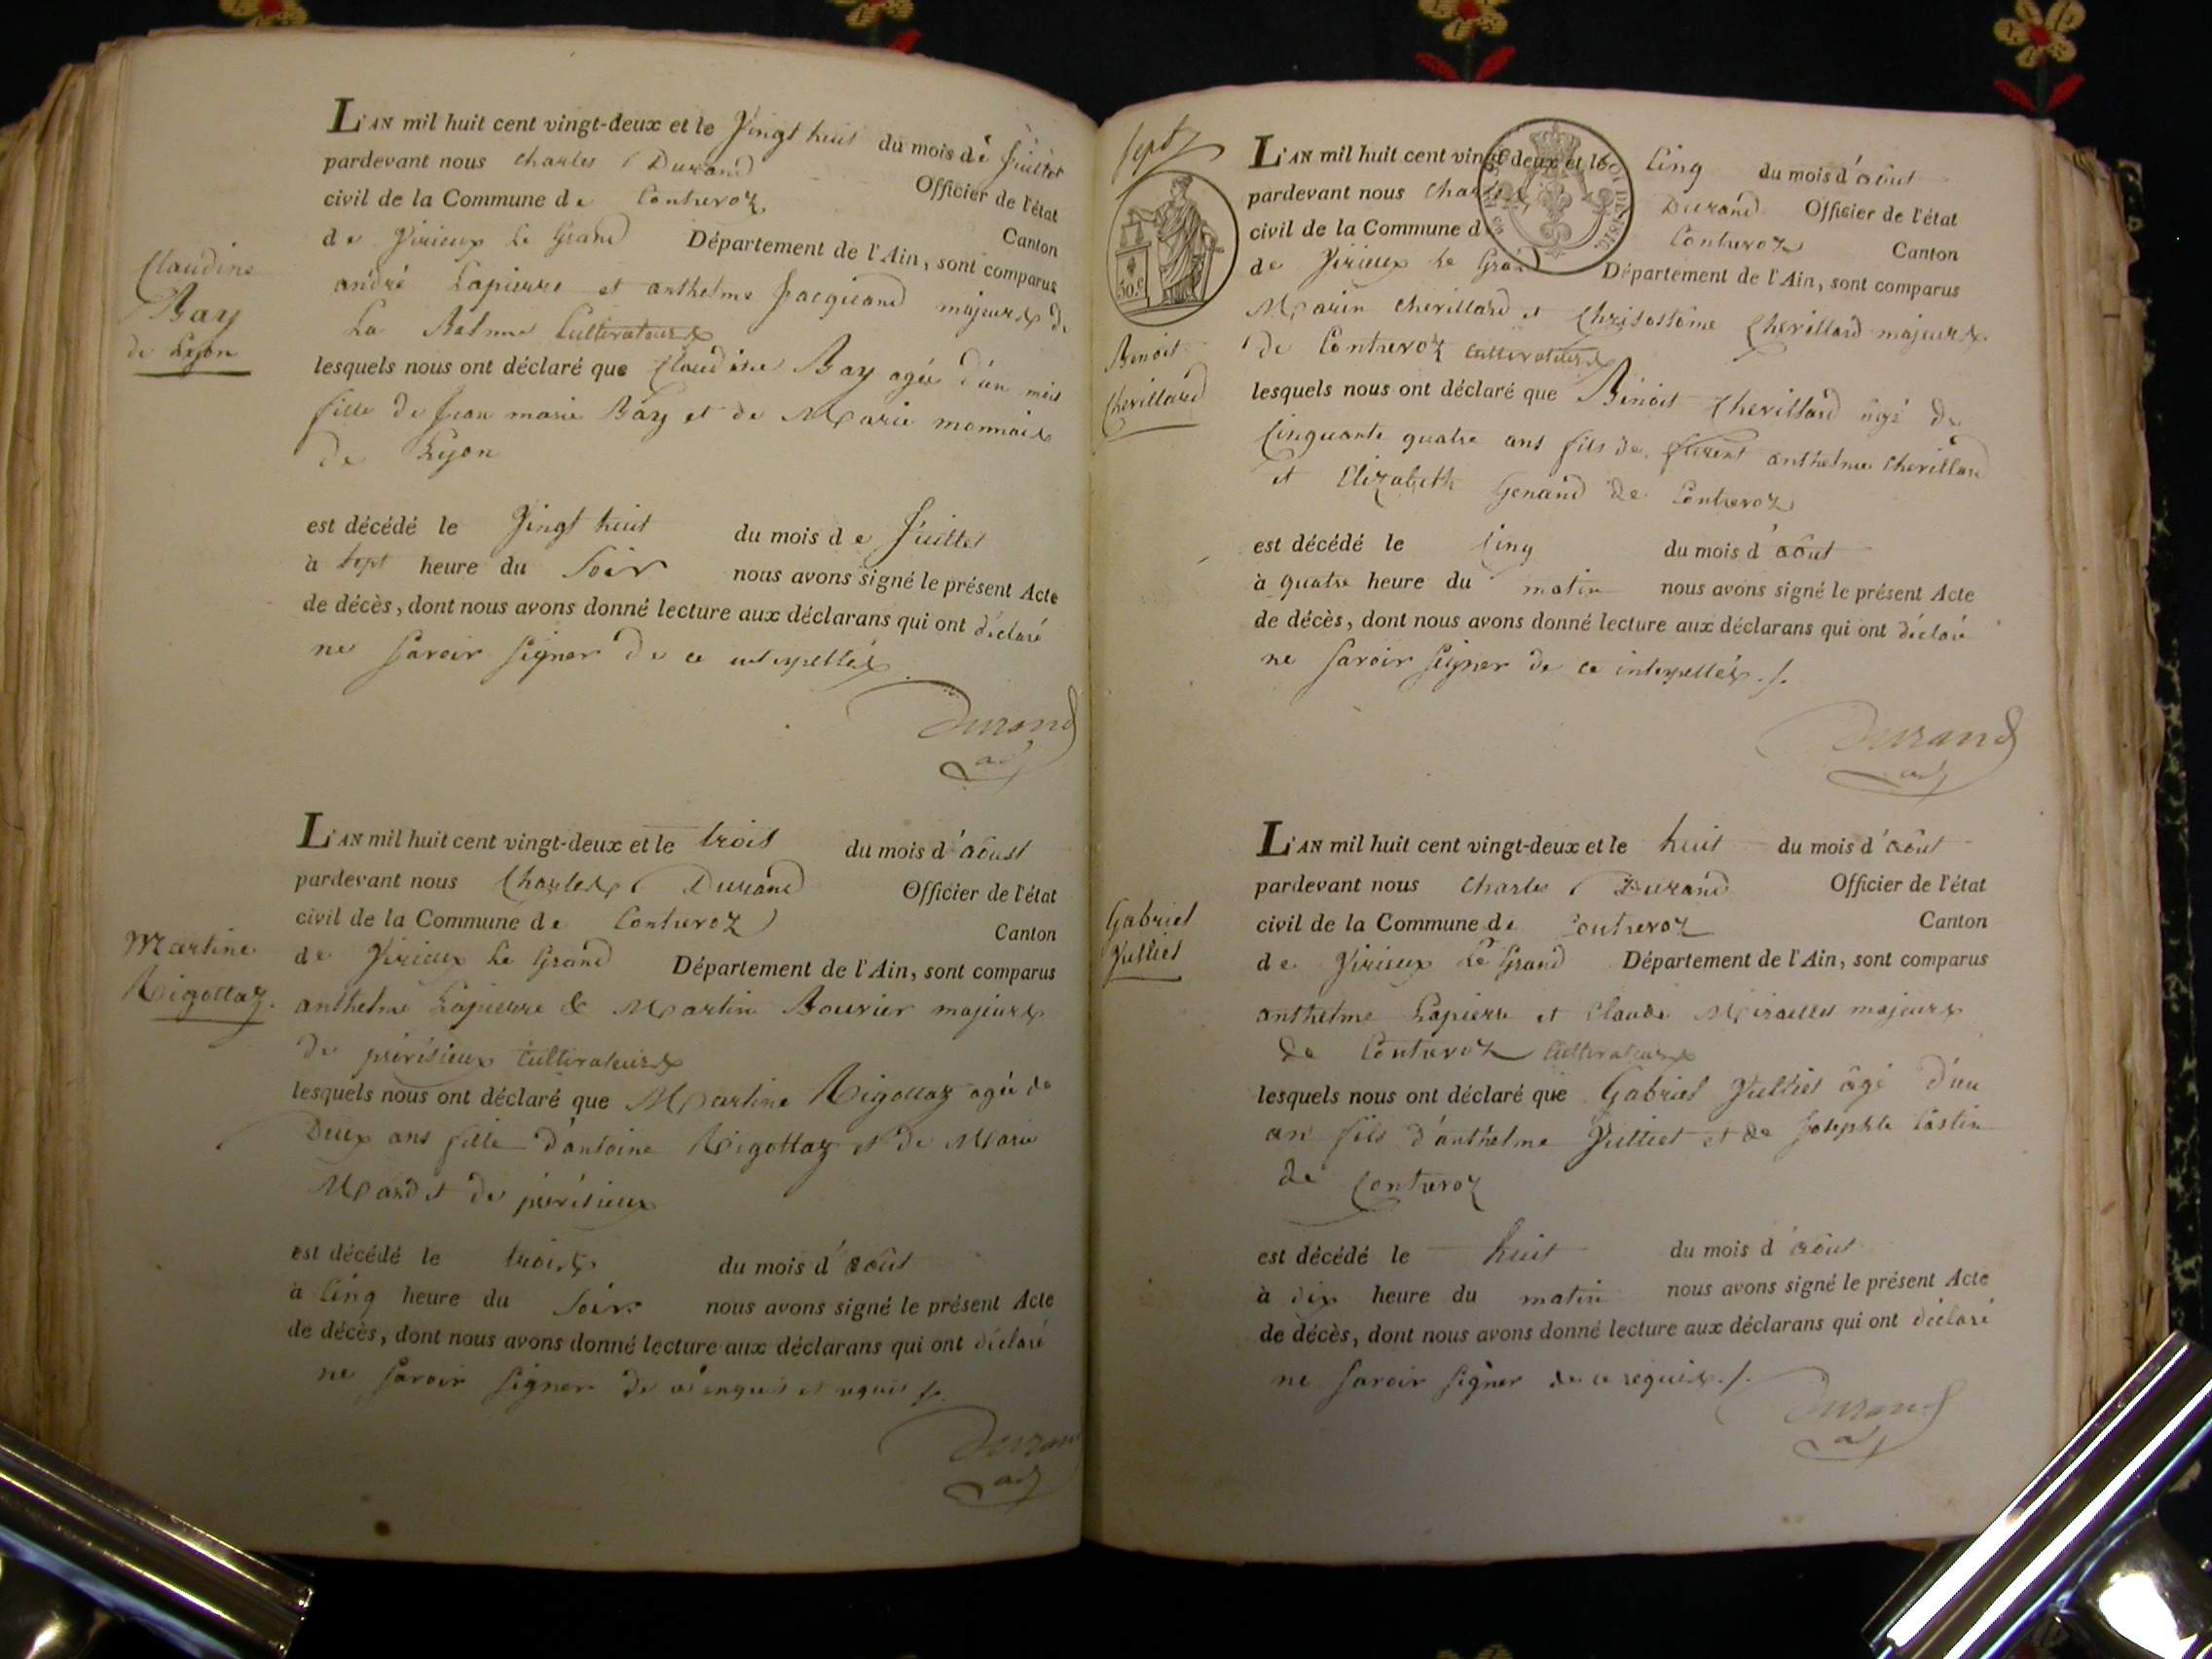 L'AN mil huit cent vingt-deux et le Vingt huit du mois de Juillet
pardevant nous Charles Durand Officier de l'état
civil de la Commune de Contrevoz Canton
de Virieux Le Grand Département de l'Ain, sont comparus
andré Lapierre et anthelme Jacquand majeurs de
La Balme Cultivateurs
Claudine
Bay
de Lyon
lesquels nous ont déclaré que Claudine Bay agée d'un mois
fille de Jean marie Bay et de Marie monnais
de Lyon
est décédé le Vingt huit du mois de Juillet
à sept heure du Soir nous avons signé le présent Acte
de décès, dont nous avons donné lecture aux déclarans qui ont déclaré
ne savoir signer de ce interpellés
Durand
adj
L'AN mil huit cent vingt-deux et le trois du mois d'aoust
pardevant nous Charles Durand Officier de l'état
civil de la Commune de Contrevoz Canton
de Virieux Le Grand Département de l'Ain, sont comparus
Martine
Rigottaz.
anthelme Lapierre & Martin Bouvier majeurs
de prévisieux cultivateurs
lesquels nous ont déclaré que Martine Rigottaz agée de
Deux ans fille d'antoine Rigottaz et de Marie
de prévisieux
est décédé le trois du mois d'août
à cinq heure du Soir nous avons signé le présent Acte
de décès, dont nous avons donné lecture aux déclarans qui ont déclaré
ne savoir signer de ce enquis et requis /.
Durand
adj
sept
30.c
L'AN mil huit cent vingt-deux et le Cinq du mois d'août
pardevant nous Charles Durand Officier de l'état
civil de la Commune de Contrevoz Canton
de Virieux Le Grand Département de l'Ain, sont comparus
Marin Chevillard et Chrisostome Chevillard majeurs
de Contrevoz cultivateurs
Benoit
Chevillard
lesquels nous ont déclaré que Bénoit Chevillard agé de
Cinquante quatre ans fils de anthelme Chevillard
et Elizabeth Genand de Contrevoz
est décédé le cinq du mois d'août
à quatre heure du matin nous avons signé le présent Acte
de décès, dont nous avons donné lecture aux déclarans qui ont déclaré
ne savoir signer de ce interpellés ./.
Durand
adj
L'AN mil huit cent vingt-deux et le huit du mois d'août
pardevant nous Charles Durand Officier de l'état
civil de la Commune de Contrevoz Canton
de Virieux Le Grand Département de l'Ain, sont comparus
Gabriel
Julliet
anthelme Lapierre et Claude majeurs
de Contrevoz Cultivateurs
lesquels nous ont déclaré que Gabriel Julliet âgé d'un
an fils d'anthelme Julliet et de Josephte Castin
de Contrevoz
est décédé le huit du mois d'août
à dix heure du matin nous avons signé le présent Acte
de décès, dont nous avons donné lecture aux déclarans qui ont déclaré
ne savoir signer de ce requis ./.
Durand
adj